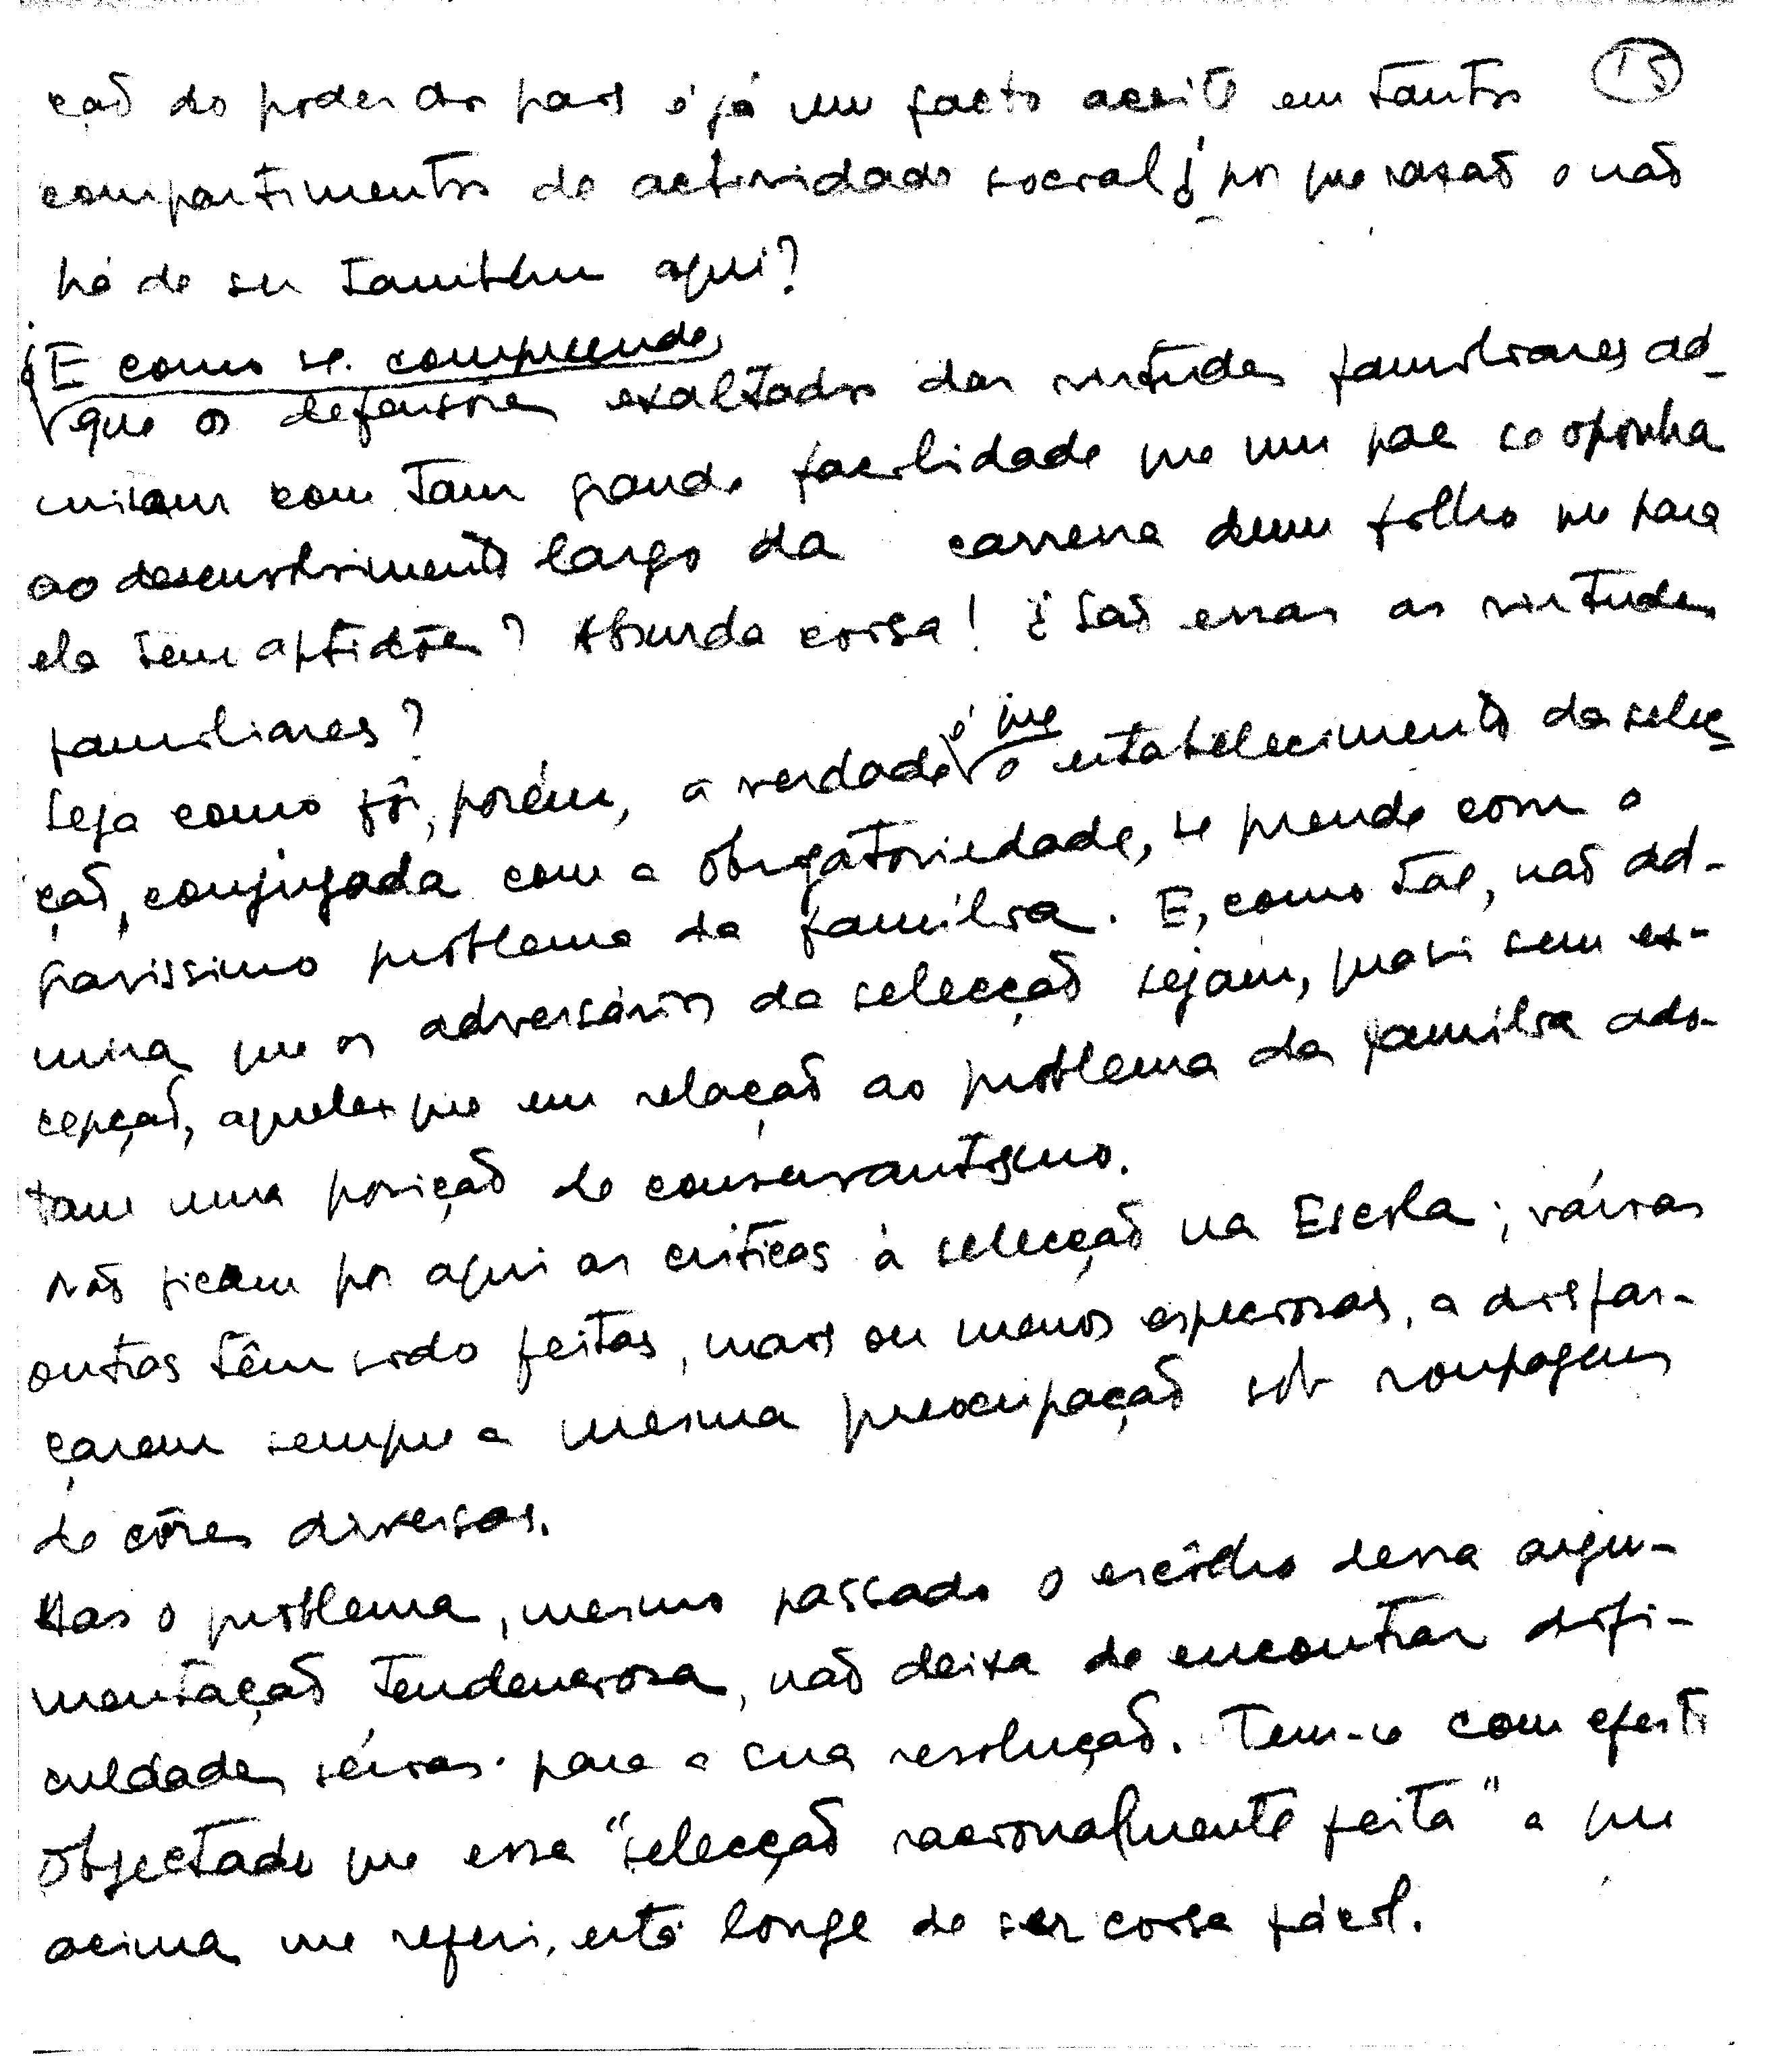 15
ção do poder dos pais é já um facto aceite em tantos
compartimentos de actividade social, ¿por que razão o não
há de ser tambêm aqui?
¿E como se compreende
que os defensores exaltados das virtudes familiares ad-
mitam com tam grande facilidade que um pae se oponha
ao desenvolvimento largo da carreira dum filho que para
ela tem aptidões? Absurda coisa! ¿São essas as virtudes
familiares?
Seja como fôr, porém, a verdade é que o estabelecimento da selec-
ção, conjugada com a obrigatoriedade, se prende com o
gravissimo problema da família. E, como tal, não ad-
mira que os adversários da selecção sejam, quasi sem ex-
cepção, aqueles que em relação ao problema da família ado-
tam uma posição de conservantismo.
Não ficam por aqui as críticas á selecção na Escola; várias
outras têm sido feitas, mais ou menos especiosas, a disfar-
çarem sempre a mesma preocupação sob roupagens
de côres diversas.
Mas o problema, mesmo passado o escôlho dessa argu-
mentação tendenciosa, não deixa de encontrar difi-
culdades sérias para a sua resolução. Tem-se com efeito
objectado que essa "selecção racionalmente feita" a que
acima me referi, está longe de ser coisa fácil.